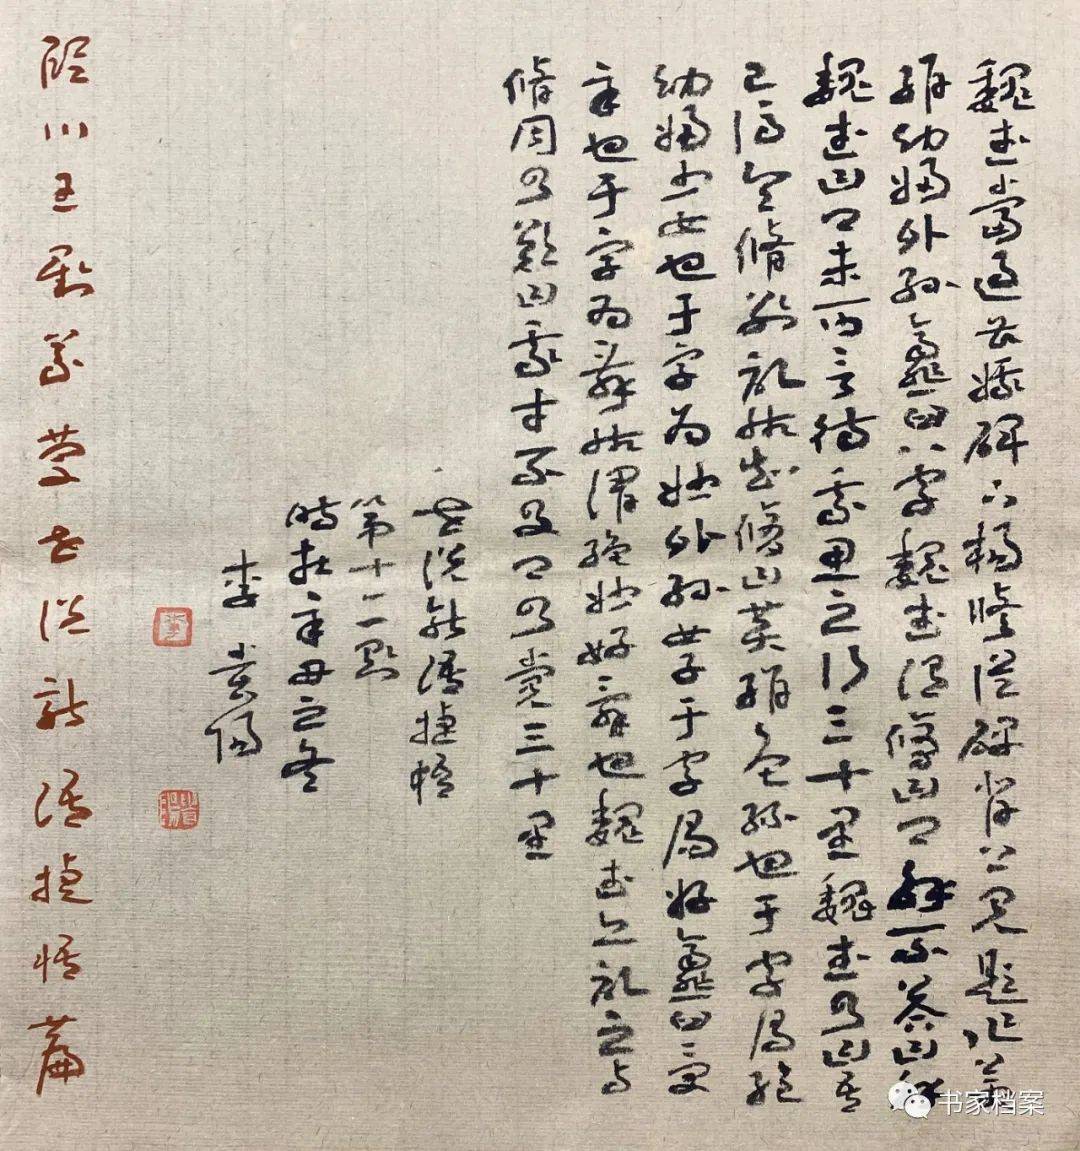 魏武嘗過曹娥碑下楊脩從碑背上見題作黃
絹幼婦外孫虀臼八字魏武謂脩曰卿解不答曰解
魏武曰卿未可言待我思之行三十里魏武乃曰吾
已得令脩別記所知脩曰黃絹色絲也于字為絕
幼婦少女也于字為妙外孫女子于字為好虀臼受
辛也于字為辭所謂絕妙好辭也魏武亦記之與
脩同乃歎曰我才不及卿乃覺三十里
世說新語捷悟
第十二
時在辛丑之冬
李
臨川王劉義慶世說新語捷悟篇
书家档案